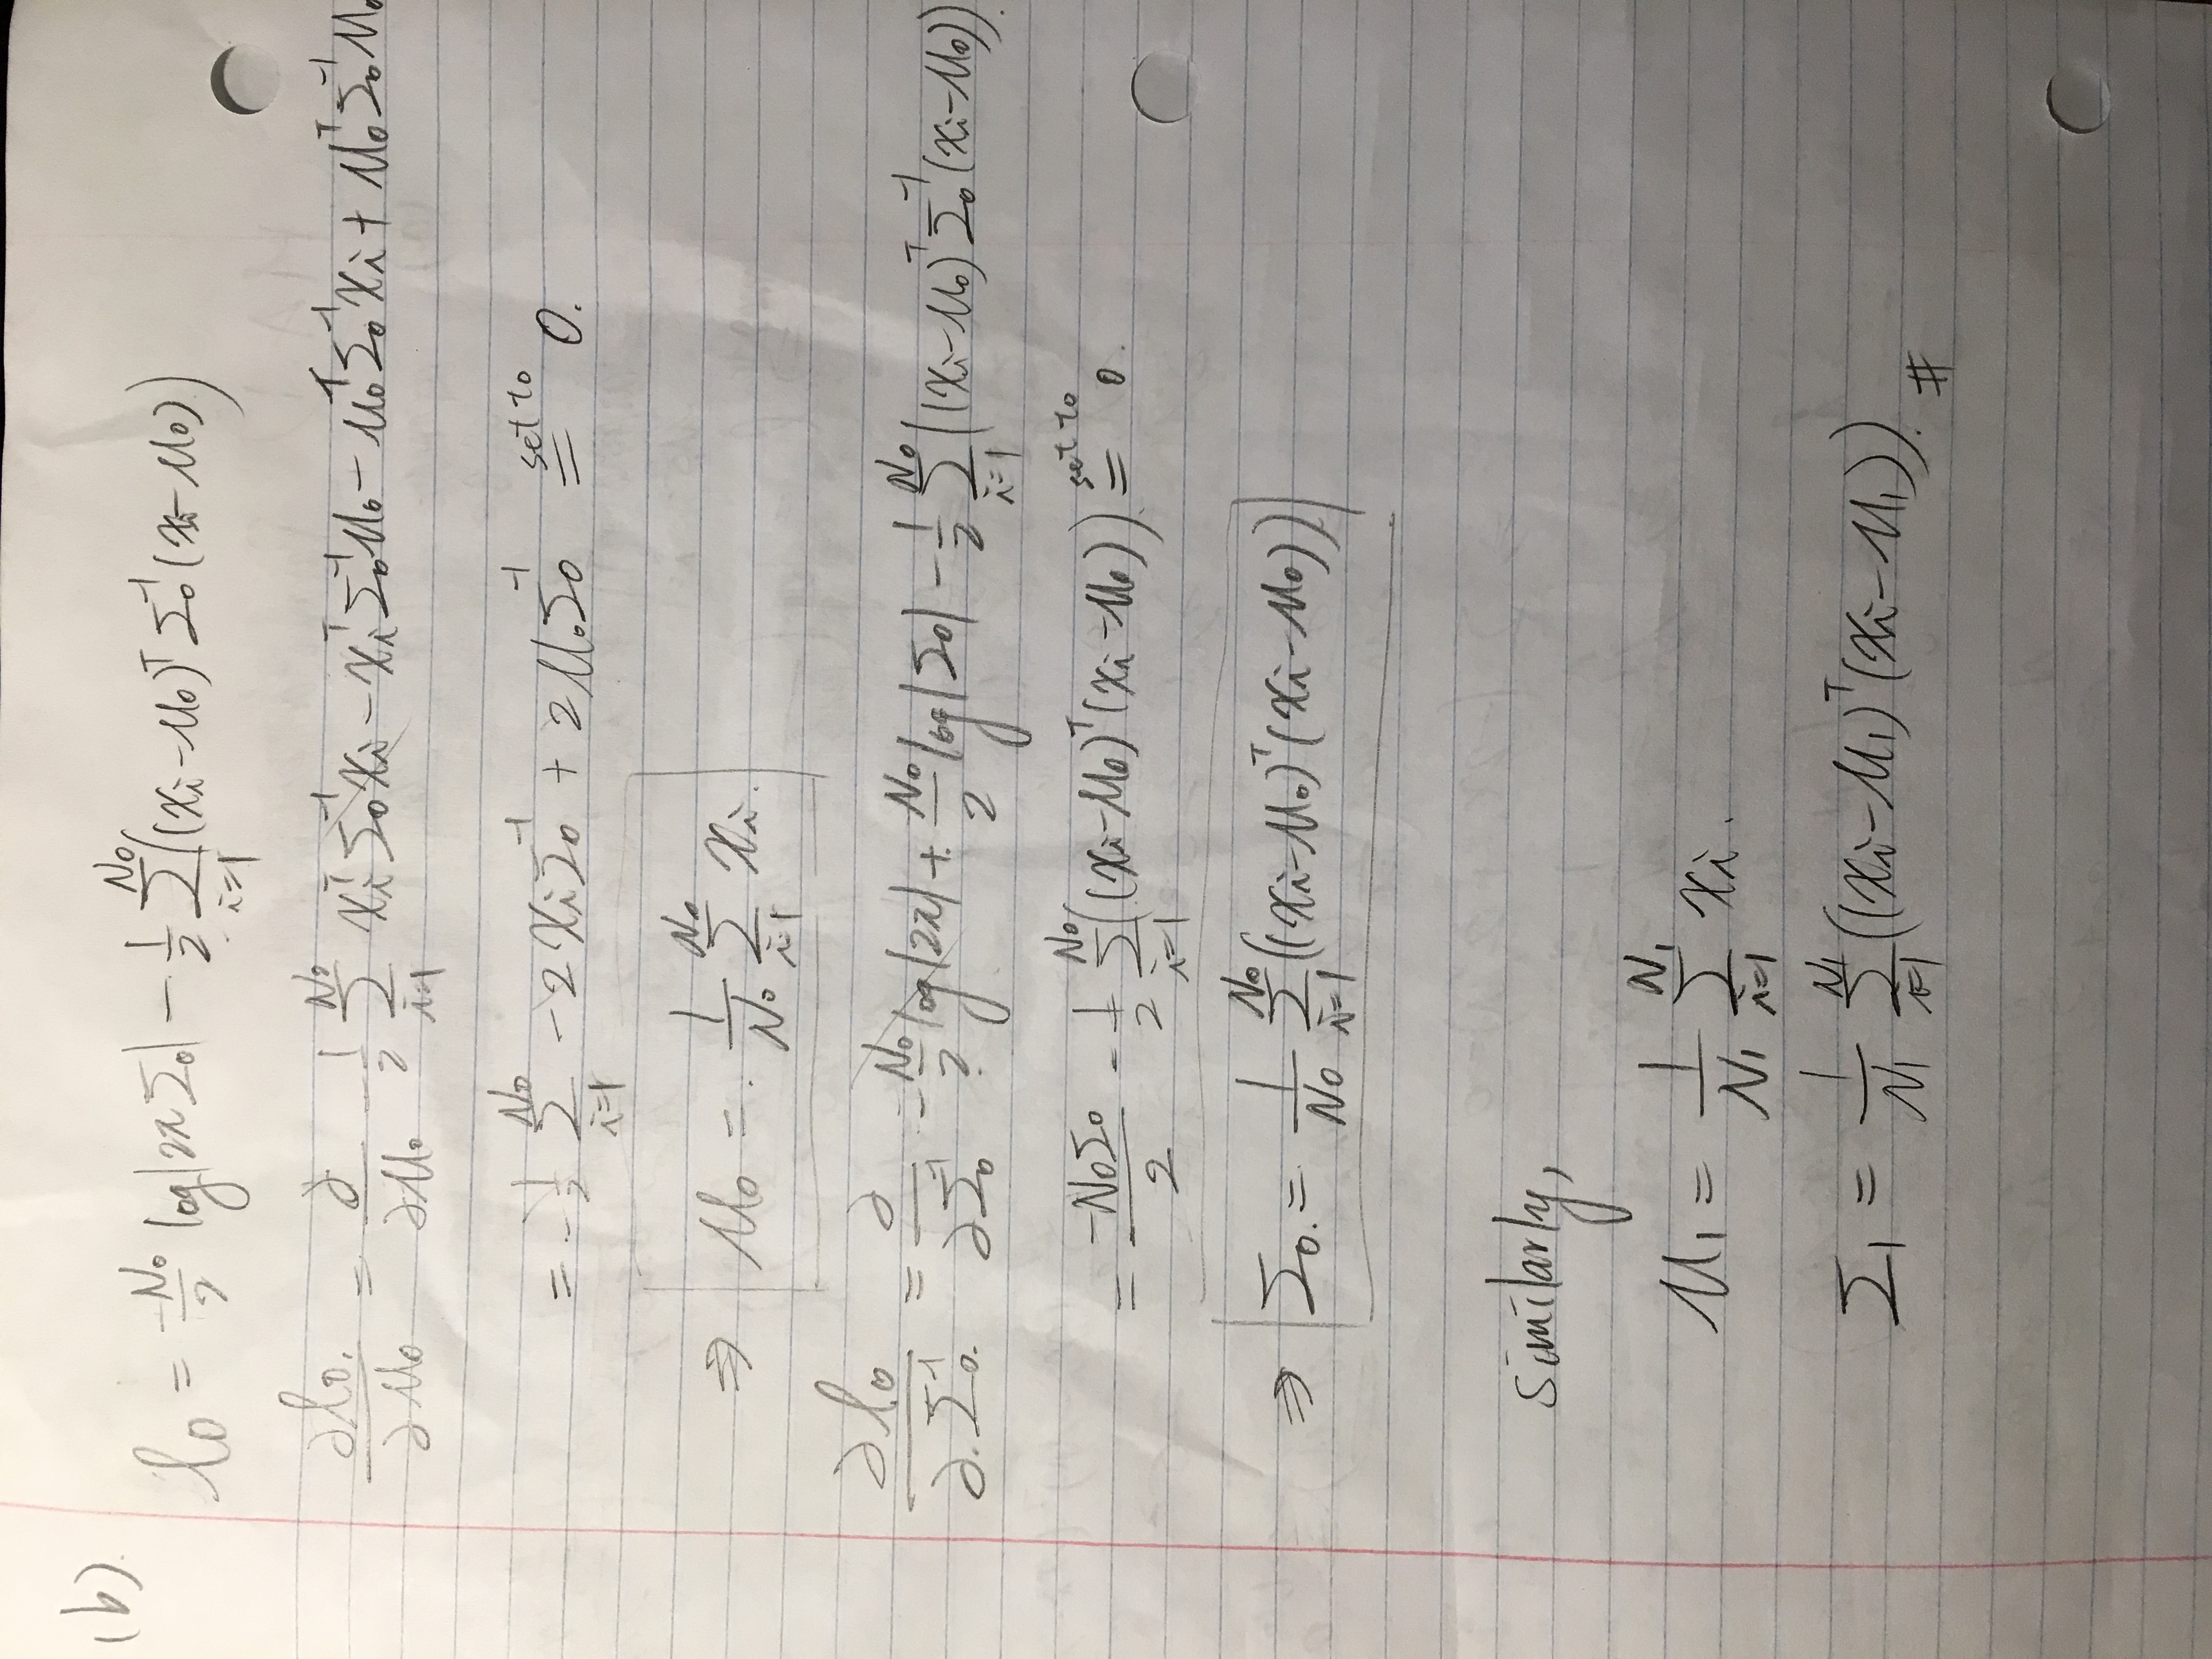 (b).
l₀ = -N₀/2 log|2πΣ₀| - 1/2 Σ_{i=1}^{N₀} ((xᵢ-μ₀)ᵀ Σ₀⁻¹ (xᵢ-μ₀))
∂l₀/∂μ₀ = ∂/∂μ₀ -1/2 Σ_{i=1}^{N₀} xᵢᵀΣ₀⁻¹xᵢ - xᵢᵀΣ₀⁻¹μ₀ - μ₀ᵀΣ₀⁻¹xᵢ + μ₀ᵀΣ₀⁻¹μ₀
= -1/2 Σ_{i=1}^{N₀} -2xᵢΣ₀⁻¹ + 2μ₀Σ₀⁻¹ set to = 0.
⇒ μ₀ = 1/N₀ Σ_{i=1}^{N₀} xᵢ.
∂l₀/∂Σ₀⁻¹ = ∂/∂Σ₀⁻¹ -N₀/2 log|2π| + N₀/2 log|Σ₀| - 1/2 Σ_{i=1}^{N₀} ((xᵢ-μ₀)ᵀ Σ₀⁻¹ (xᵢ-μ₀)).
= -N₀Σ₀/2 - 1/2 Σ_{i=1}^{N₀} ((xᵢ-μ₀)ᵀ(xᵢ-μ₀)) set to = 0.
⇒ Σ₀ = 1/N₀ Σ_{i=1}^{N₀} ((xᵢ-μ₀)ᵀ(xᵢ-μ₀))
similarly,
μ₁ = 1/N₁ Σ_{i=1}^{N₁} xᵢ.
Σ₁ = 1/N₁ Σ_{i=1}^{N₁} ((xᵢ-μ₁)ᵀ(xᵢ-μ₁)). #